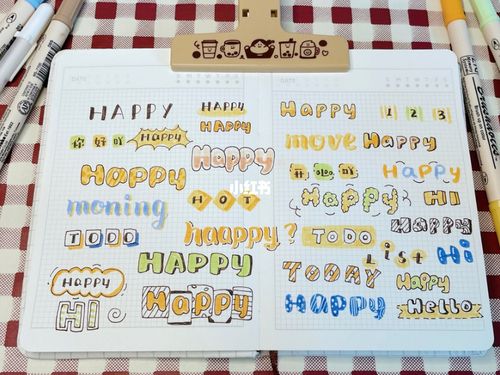 DATE
HAPPY
HAPPY
HAPPY
你好吖
HAPPY
Happy
Happy
小红书
moning
HOT
TODO
haappy?
HAPPY
Happy
HI
Happy
DATE
S M T W T F S
Happy
1 2 3
move Happy
Happy
Happy
HI
TODO
Happy
List
Hi
TODAY
Happy
Happy
Hello